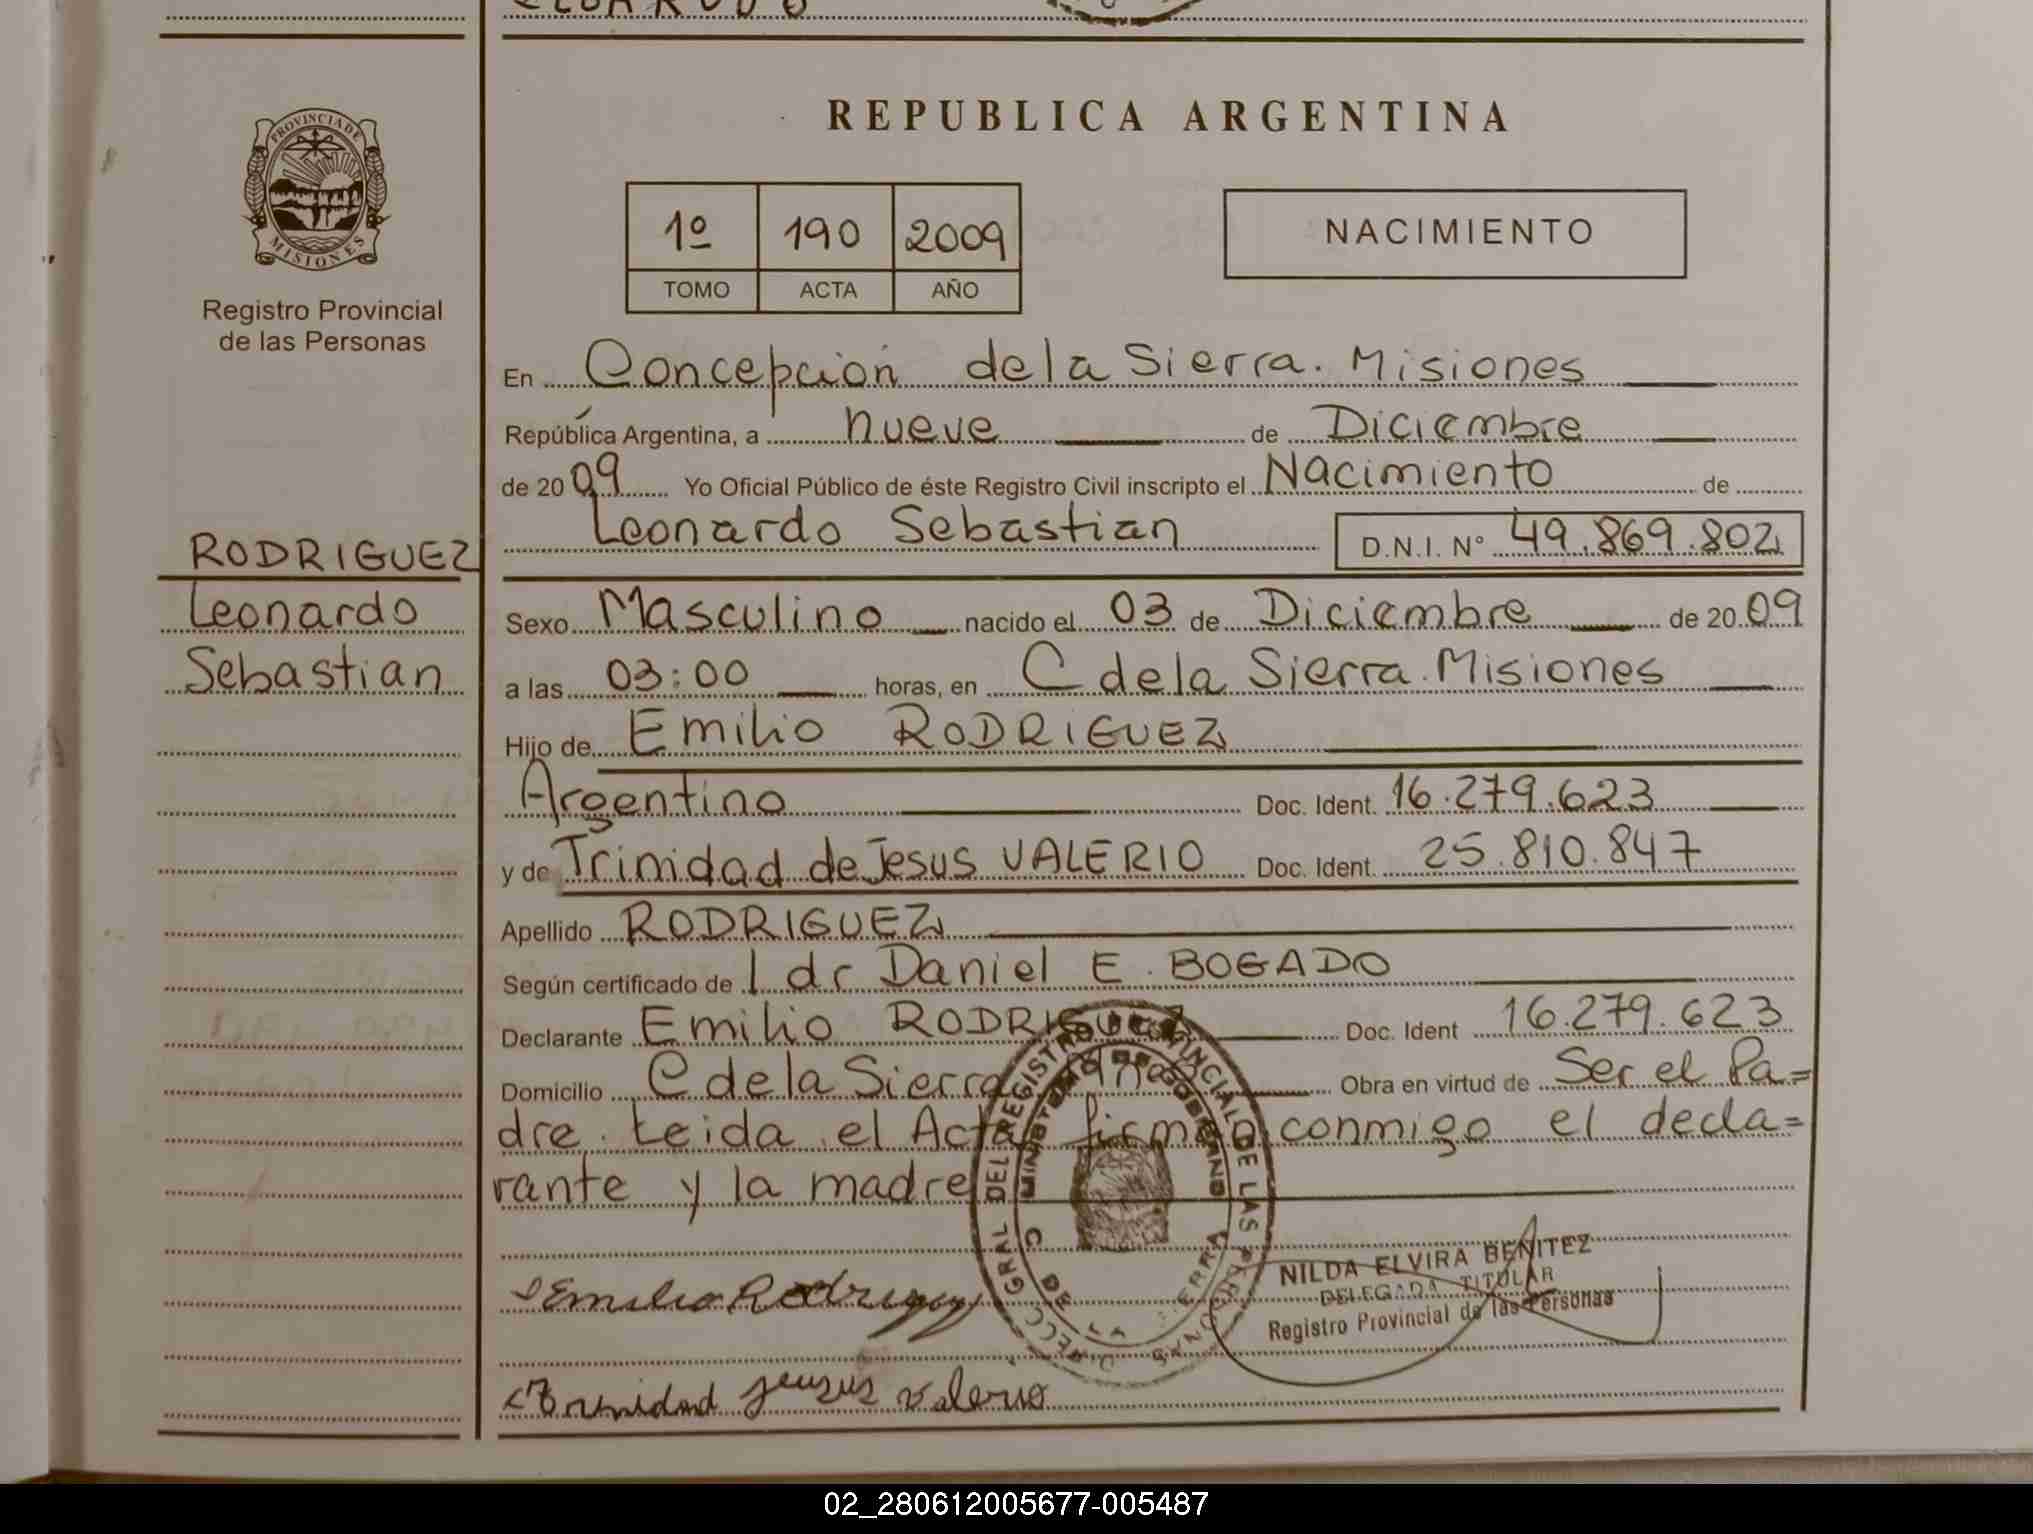 PROVINCIA DE
MISIONES
Registro Provincial
de las Personas
RODRIGUEZ
Leonardo
Sebastian
REPUBLICA ARGENTINA
1º 190 2009
TOMO ACTA AÑO
NACIMIENTO
En Concepción de la Sierra. Misiones
República Argentina, a nueve de Diciembre
de 2009 Yo Oficial Público de éste Registro Civil inscripto el Nacimiento de
Leonardo Sebastian D.N.I. N° 49.869.802
Sexo Masculino nacido el 03 de Diciembre de 2009
a las 03:00 horas, en C de la Sierra. Misiones
Hijo de Emilio RODRIGUEZ
Argentino Doc. Ident. 16.279.623
y de Trinidad de Jesus VALERIO Doc. Ident. 25.810.847
Apellido RODRIGUEZ
Según certificado de l dr Daniel E. BOGADO
Declarante Emilio RODRIGUEZ Doc. Ident 16.279.623
Domicilio C de la Sierra Obra en virtud de Ser el Pa=
dre. Leida el Acta firman conmigo el decla=
rante y la madre
Emilio Rodriguez
NILDA ELVIRA BENITEZ
DELEGADA TITULAR
Registro Provincial de las Personas
Trinidad Jesus Valerio
02_280612005677-005487